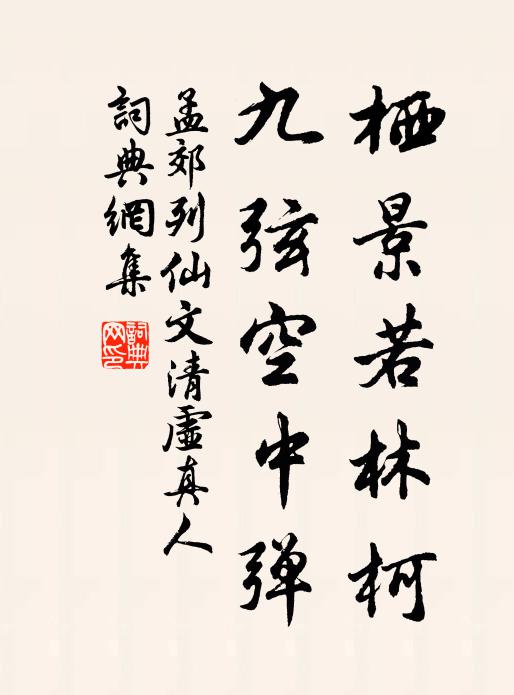 栖景若林柯
九弦空中弹
孟郊列仙文清虚真人
詞典網集
詞典网印